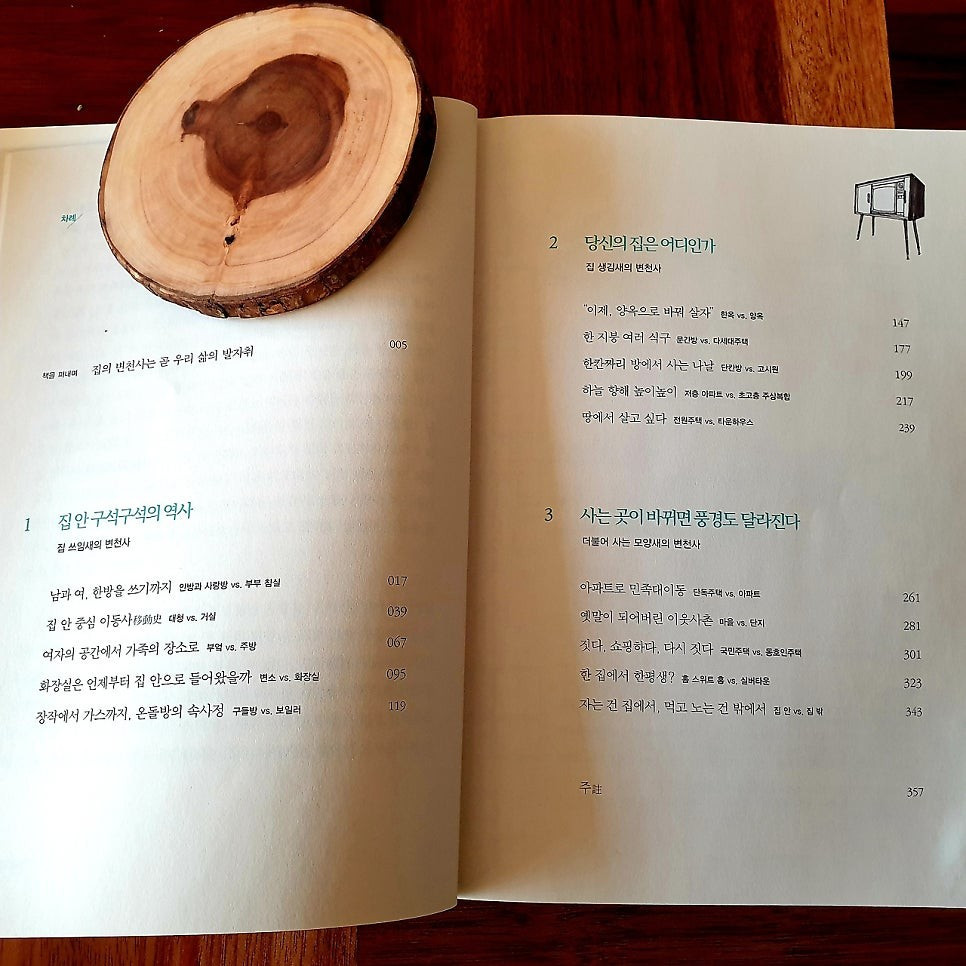 차례
책을 펴내며 집의 변천사는 곧 우리 삶의 발자취 005
1 집 안 구석구석의 역사
집 쓰임새의 변천사
남과 여, 한방을 쓰기까지 안방과 사랑방 vs. 부부 침실 017
집 안 중심 이동사移動史 대청 vs. 거실 039
여자의 공간에서 가족의 장소로 부엌 vs. 주방 067
화장실은 언제부터 집 안으로 들어왔을까 변소 vs. 화장실 095
장작에서 가스까지, 온돌방의 속사정 구들방 vs. 보일러 119
2 당신의 집은 어디인가
집 생김새의 변천사
“이제, 양옥으로 바꿔 살자” 한옥 vs. 양옥 147
한 지붕 여러 식구 문간방 vs. 다세대주택 177
한칸짜리 방에서 사는 나날 단칸방 vs. 고시원 199
하늘 향해 높이높이 저층 아파트 vs. 초고층 주상복합 217
땅에서 살고 싶다 전원주택 vs. 타운하우스 239
3 사는 곳이 바뀌면 풍경도 달라진다
더불어 사는 모양새의 변천사
아파트로 민족대이동 단독주택 vs. 아파트 261
옛말이 되어버린 이웃사촌 마을 vs. 단지 281
짓다, 쇼핑하다, 다시 짓다 국민주택 vs. 동호인주택 301
한 집에서 한평생? 홈 스위트 홈 vs. 실버타운 323
자는 건 집에서, 먹고 노는 건 밖에서 집 안 vs. 집 밖 343
주註 357